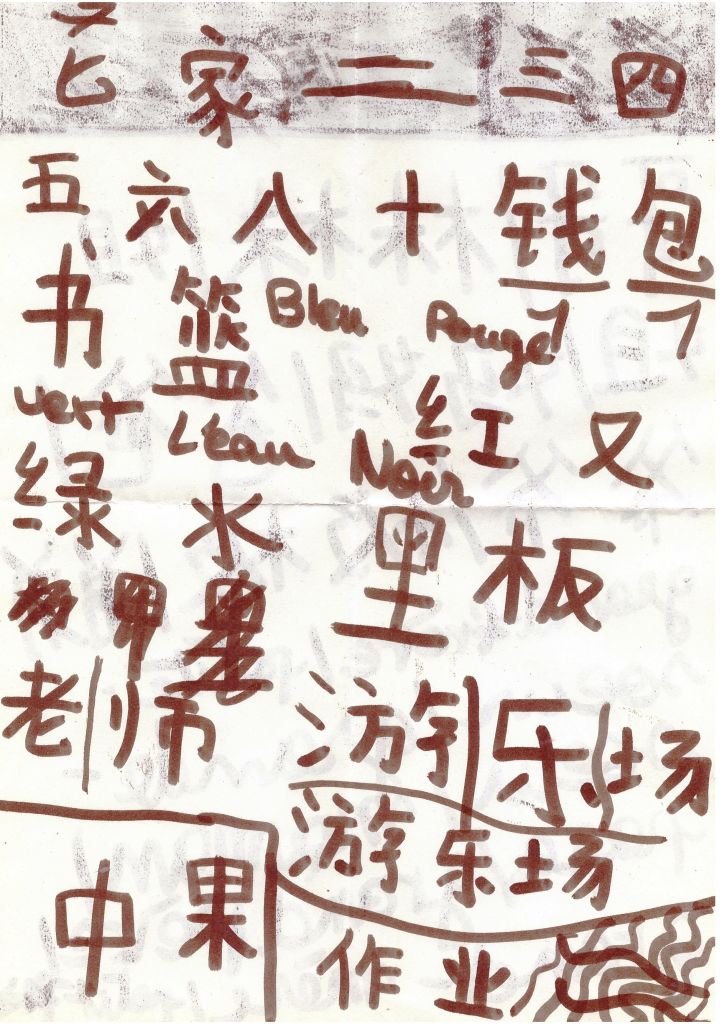 家 二 三 四
五 六 八 十 钱 包
书 篮 Bleu Rouge
vert L'eau Noir 红 又
绿 水 里 板
老 师 游 乐 场
游 乐 场
中 果 作 业